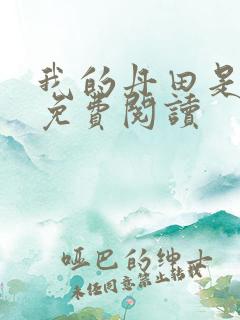 我的丹田是
免費閱讀
哑巴的绅士
未经同意禁止转载